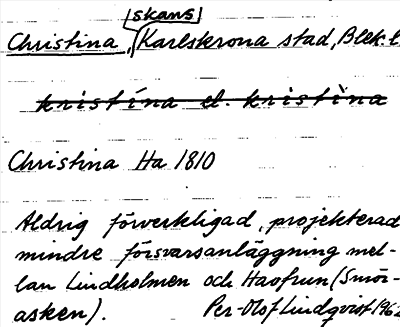 skans
Christina, Karlskrona stad, Blek. l.
kristína el. kristìna
Christina Ha 1810
Aldrig förverkligad, projekterad
mindre försvarsanläggning mel-
lan Lindholmen och Haofrun (Smör-
asken). Per-Olof Lindqvist 1962